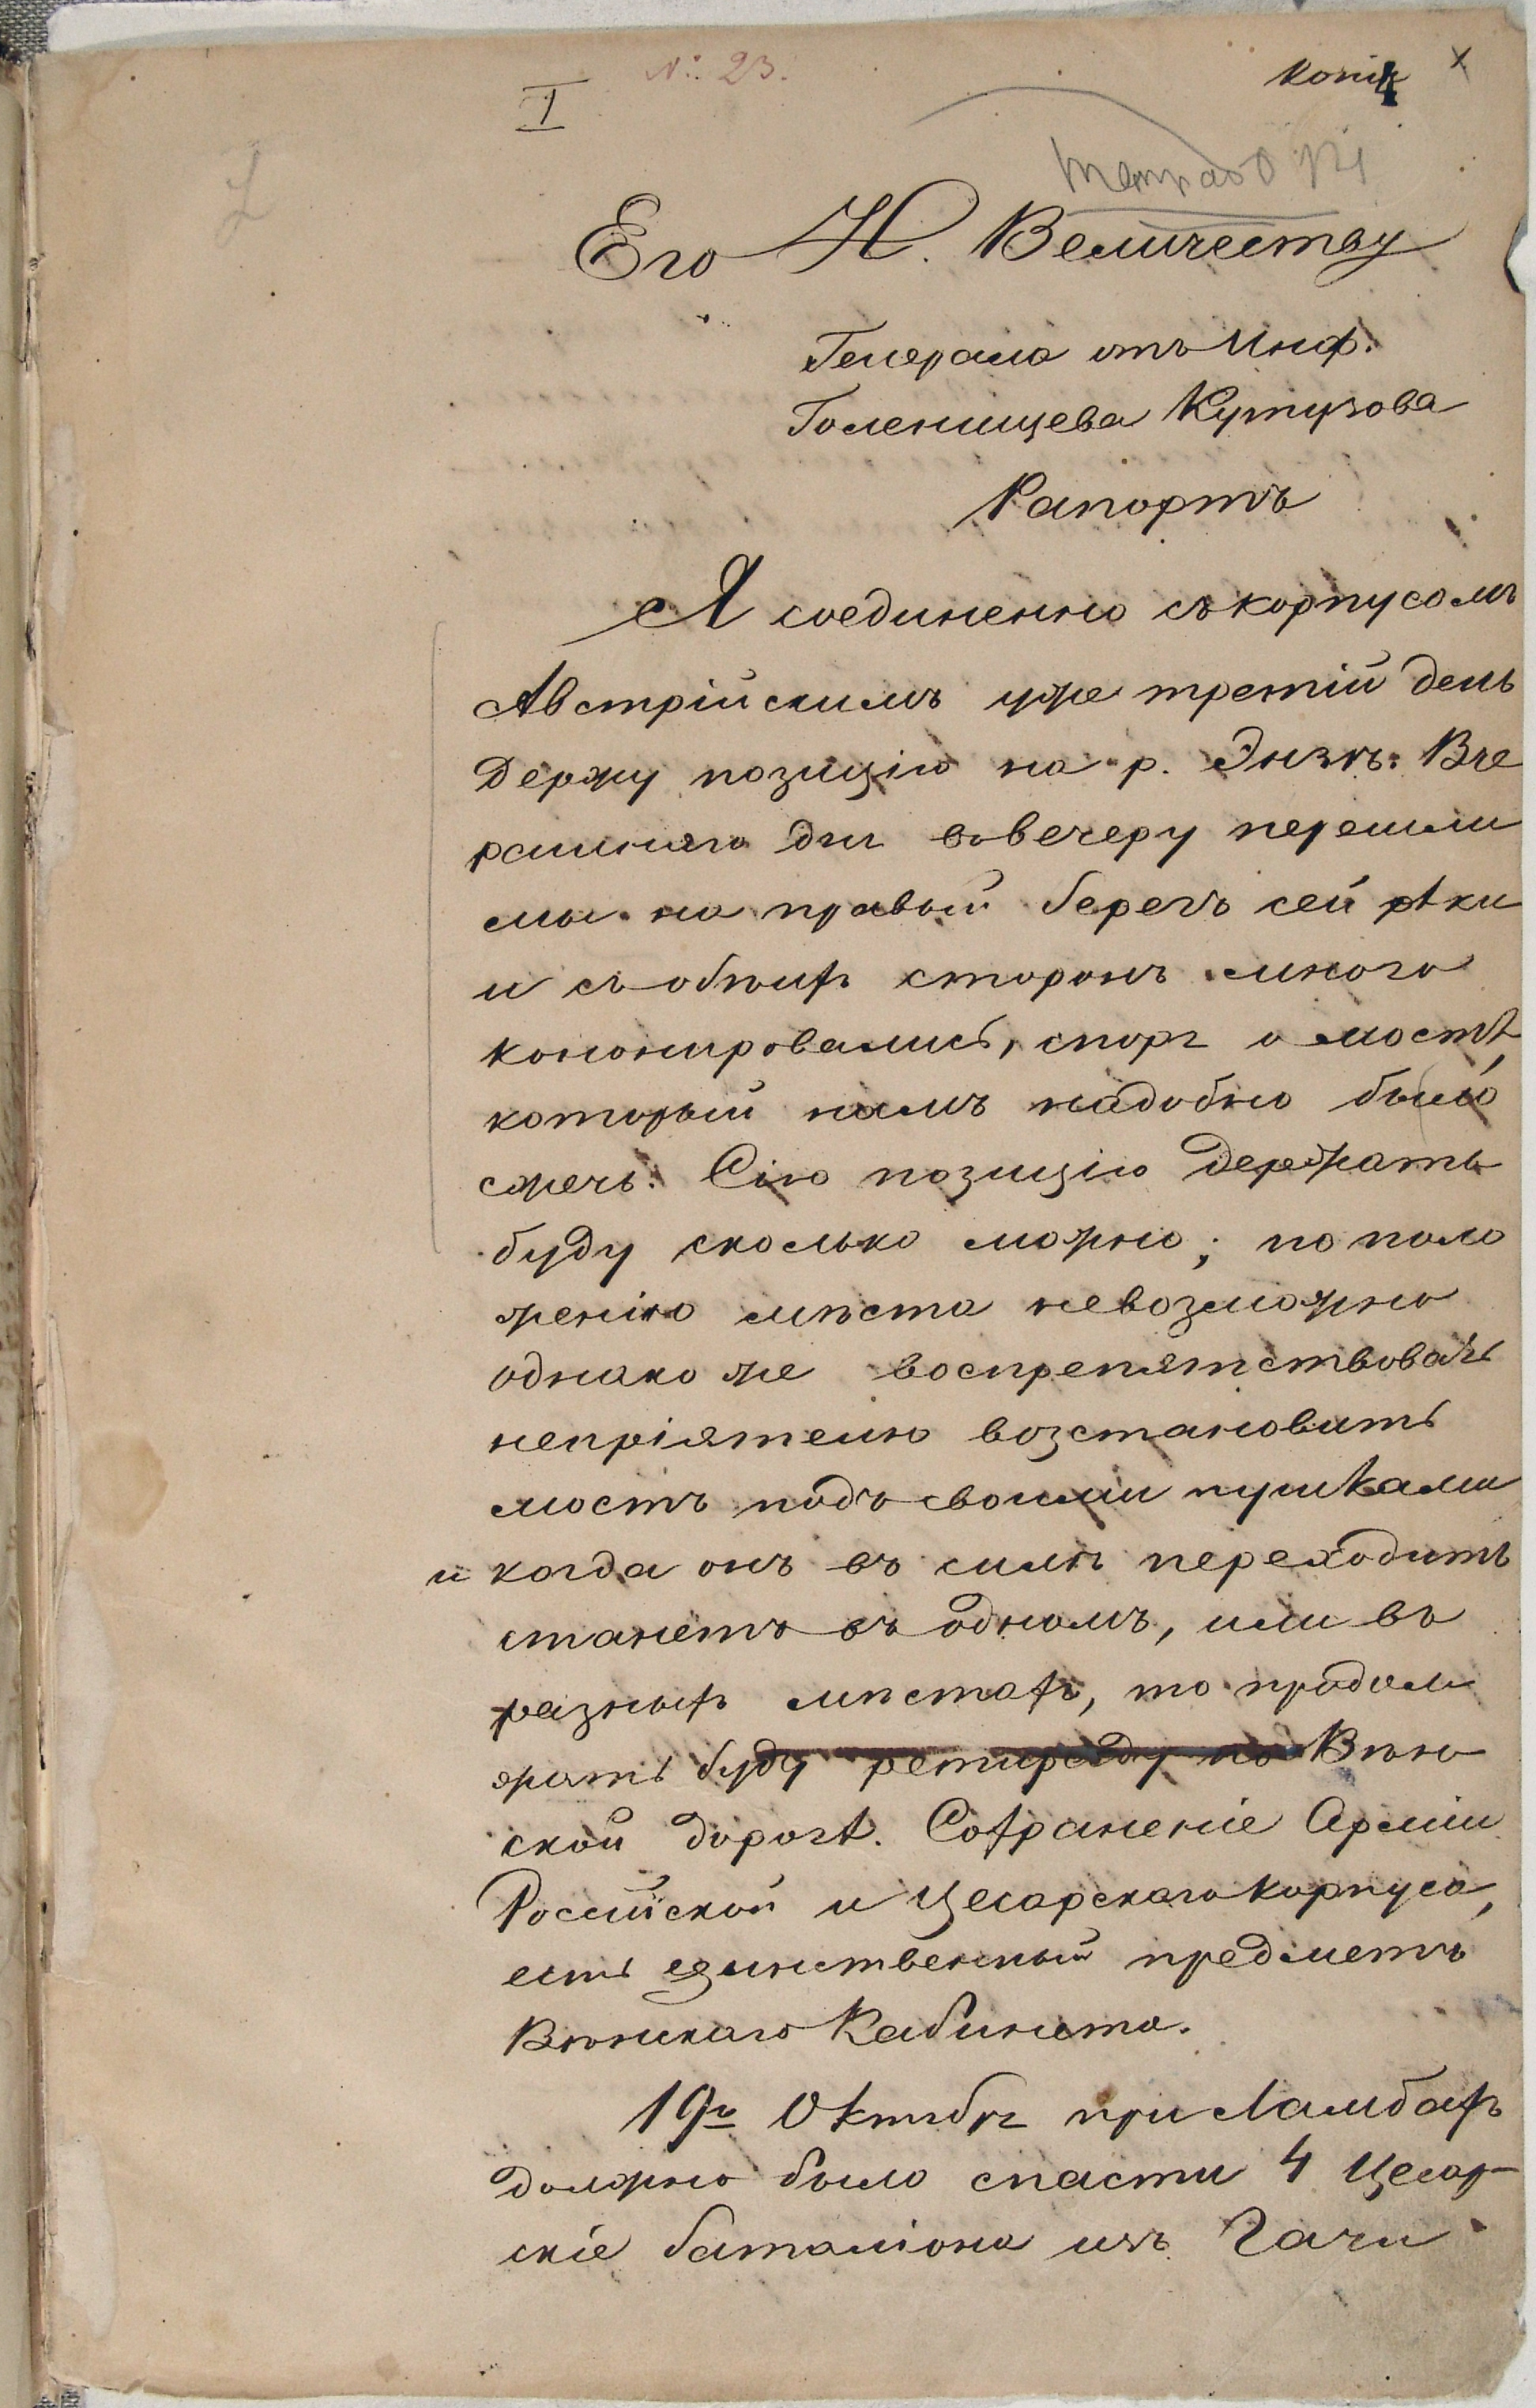 № 23.
I
Копія
х
Тетрадь №1
Его И. Величеству
Генерала отъ Инф.
Голенищева Кутузова
Рапортъ
Я соединенно съ корпусомъ
Австрійскимъ уже третій день
держу позицію на р. Энзѣ. Вче
рашняго дня ввечеру перешли
мы на правый берегъ сей рѣки
и съ обѣихъ сторонъ много
канонировались, споря о мостѣ,
который намъ надобно было
сжечь. Сію позицію держать
буду сколько можно; по поло
женію мѣста невозможно
однако же воспрепятствовать
непріятелю возстановить
мостъ подъ своими пушками
и когда онъ въ силѣ переходить
станетъ въ одномъ, или въ
разныхъ мѣстахъ, то продол
жать буду ретираду по Вѣн
ской дорогѣ. Сохраненіе Арміи
Россійской и Цесарскаго корпуса,
есть единственный предметъ
Вѣнскаго Кабинета.
19го Октября при Ламбахѣ
должно было спасти 4 Цесар-
скіе баталіона изъ